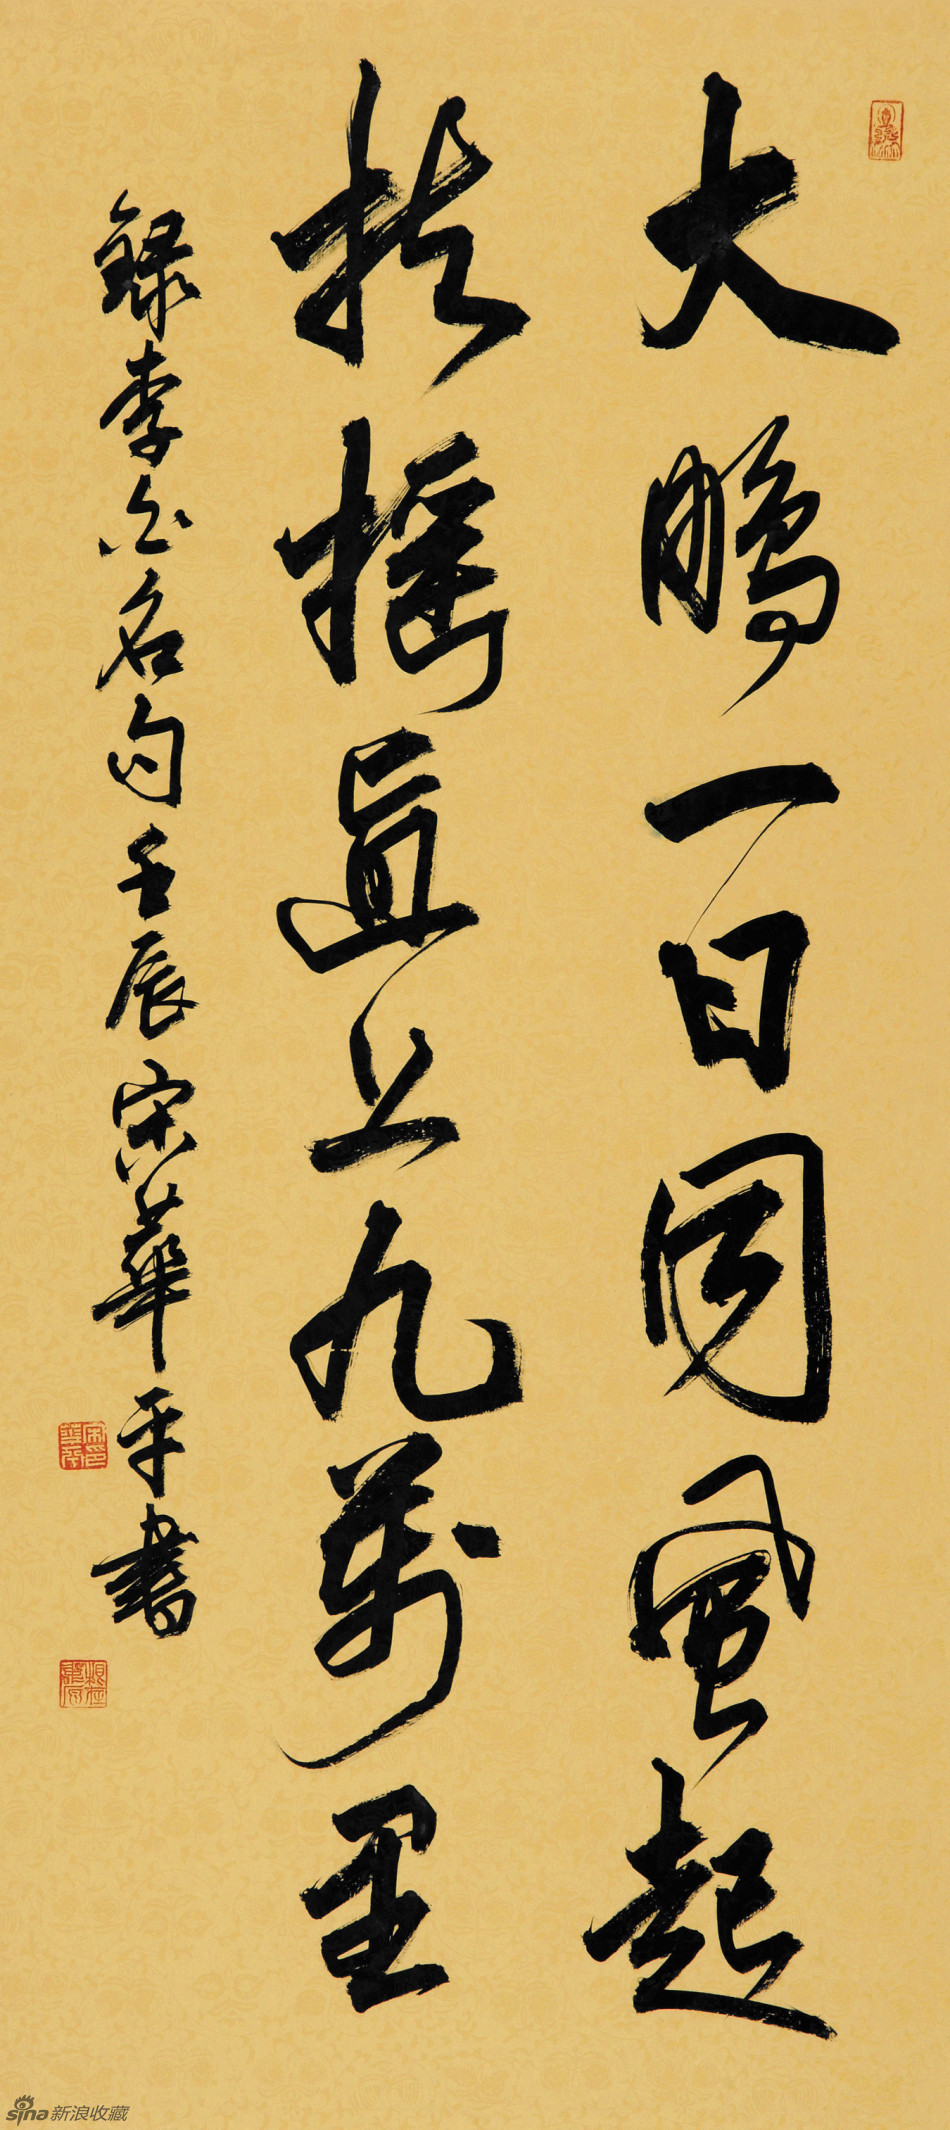 大鹏一日同风起
扶摇直上九万里
録李白名句壬辰宋華平書
sina新浪收藏